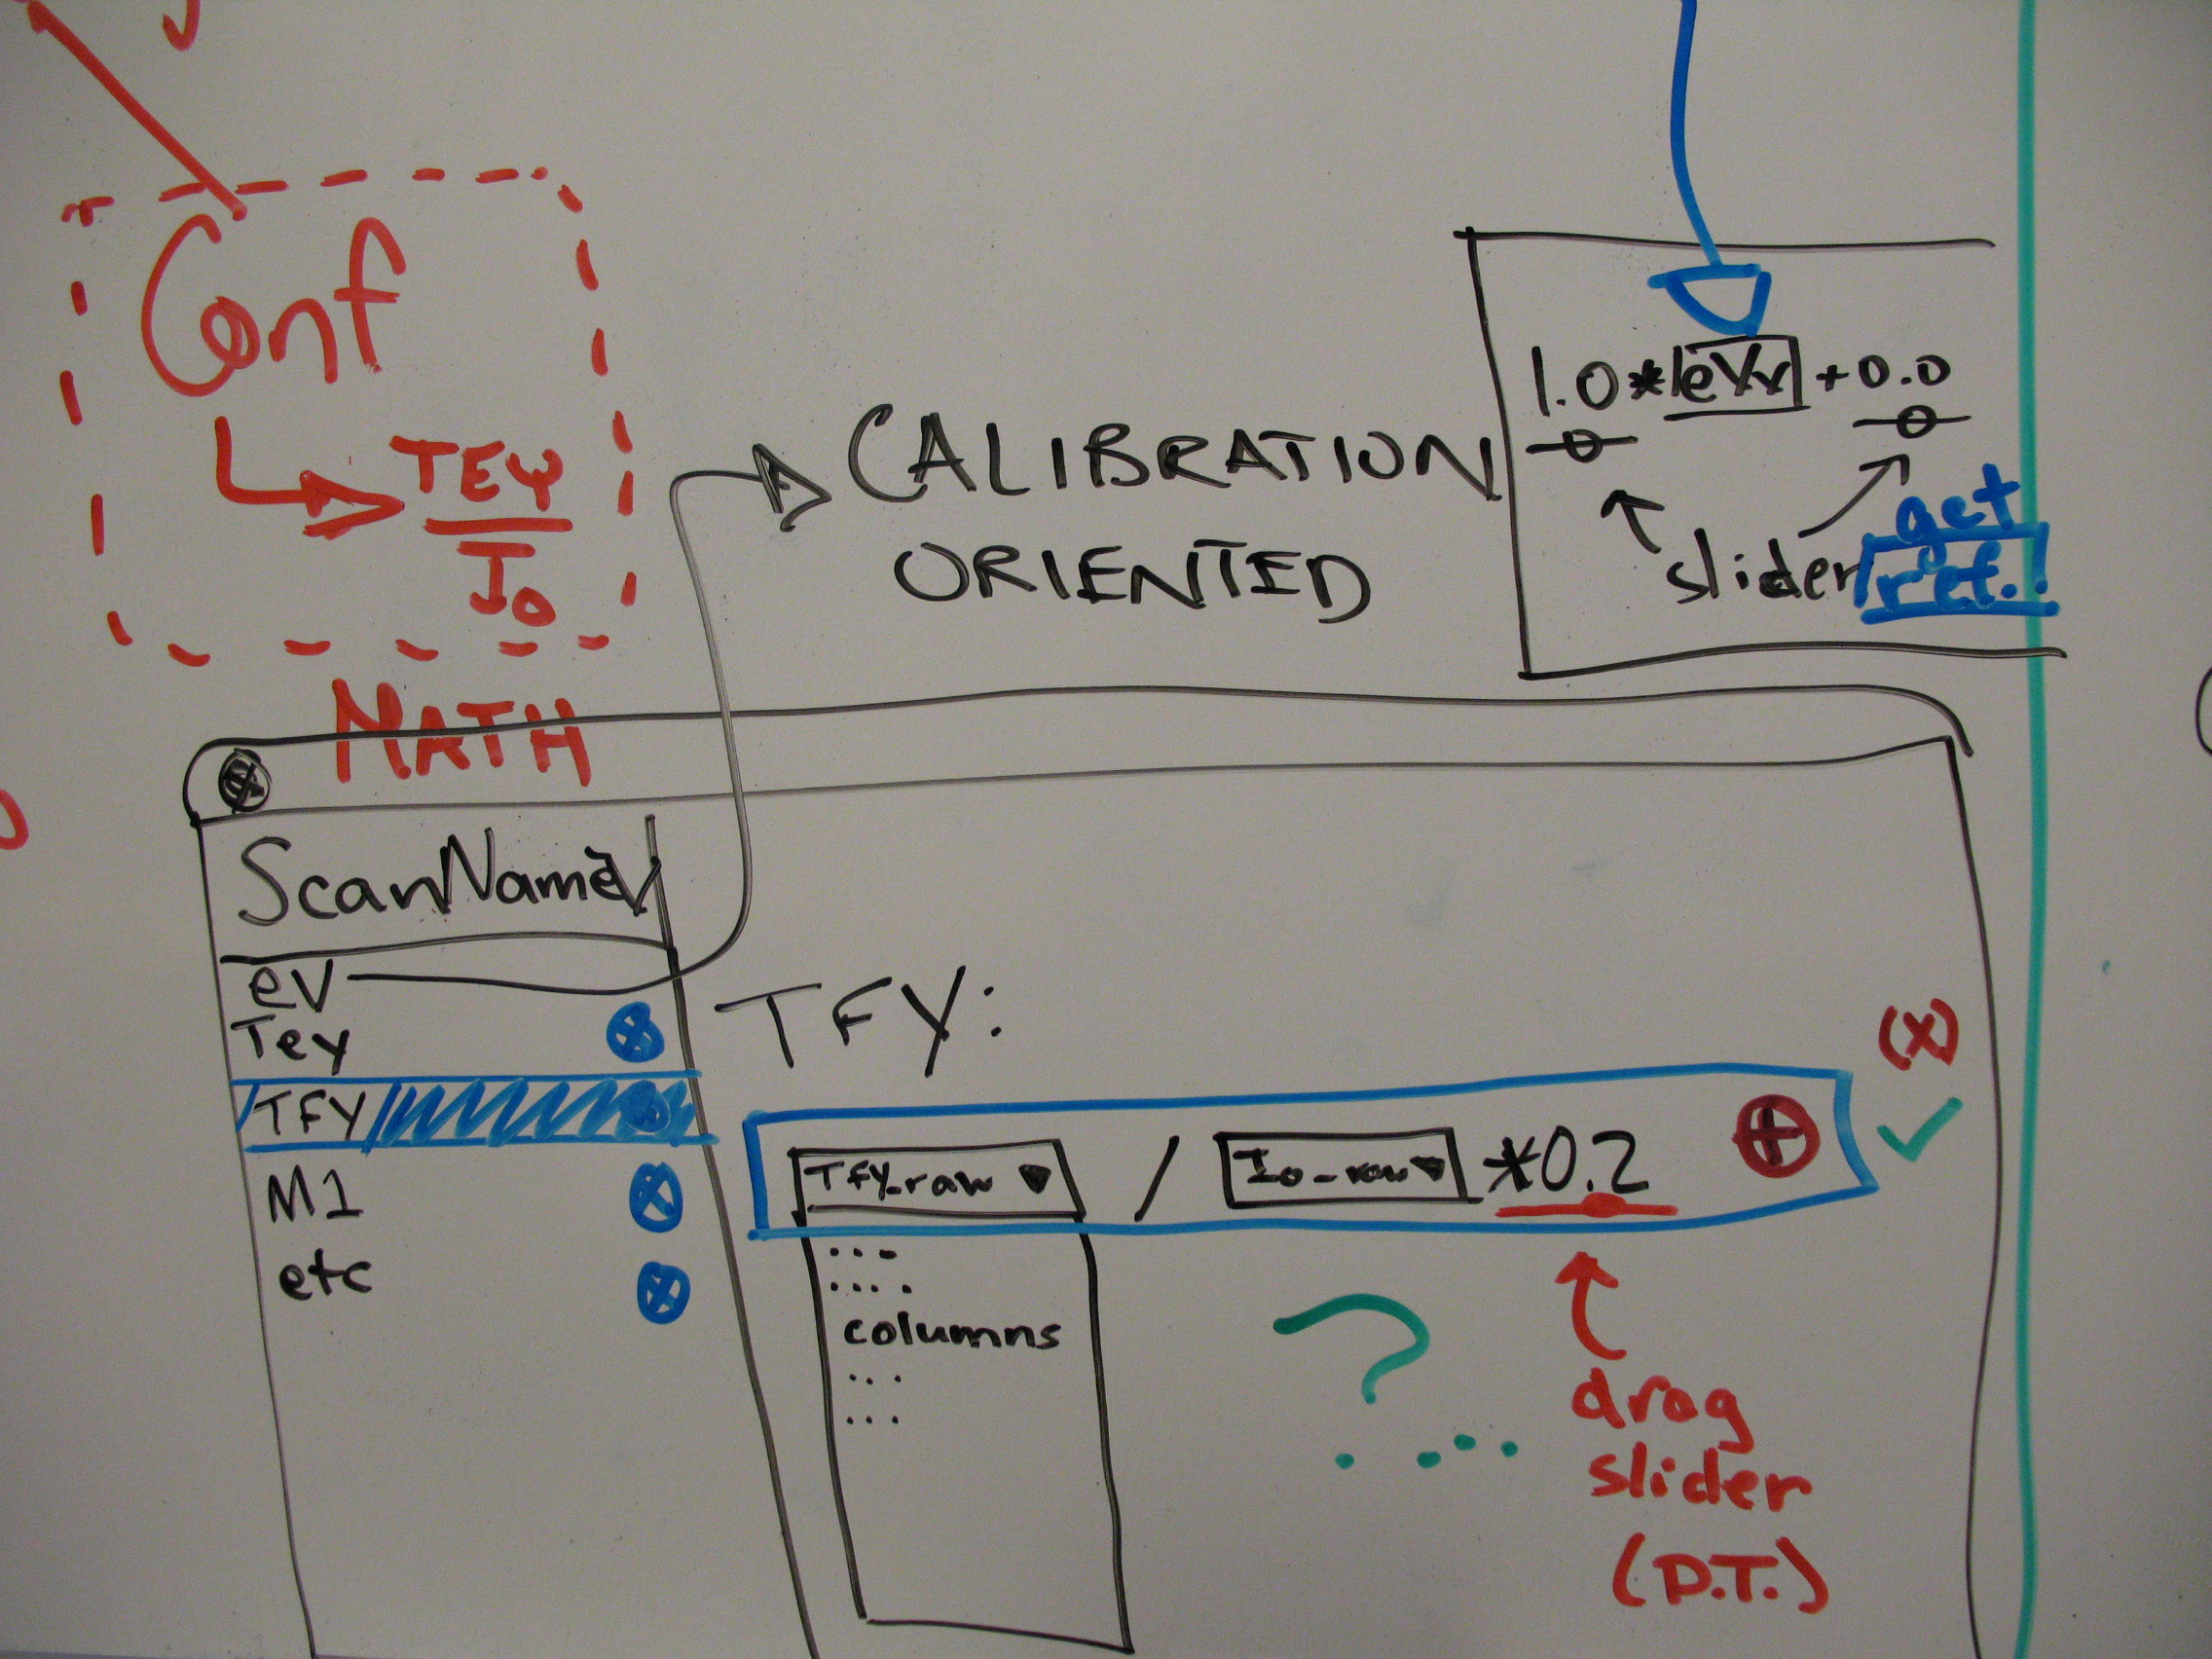 Conf
TEY
I0
MATH
CALIBRATION
ORIENTED
1.0*eVr+0.0
slider
get
ref.!
ScanName
eV
Tey
TFY
M1
etc
TFY:
(x)
TFY_raw / I0_raw *0.2
... 
....
columns
...
...
?
drag
slider
(D.T.)